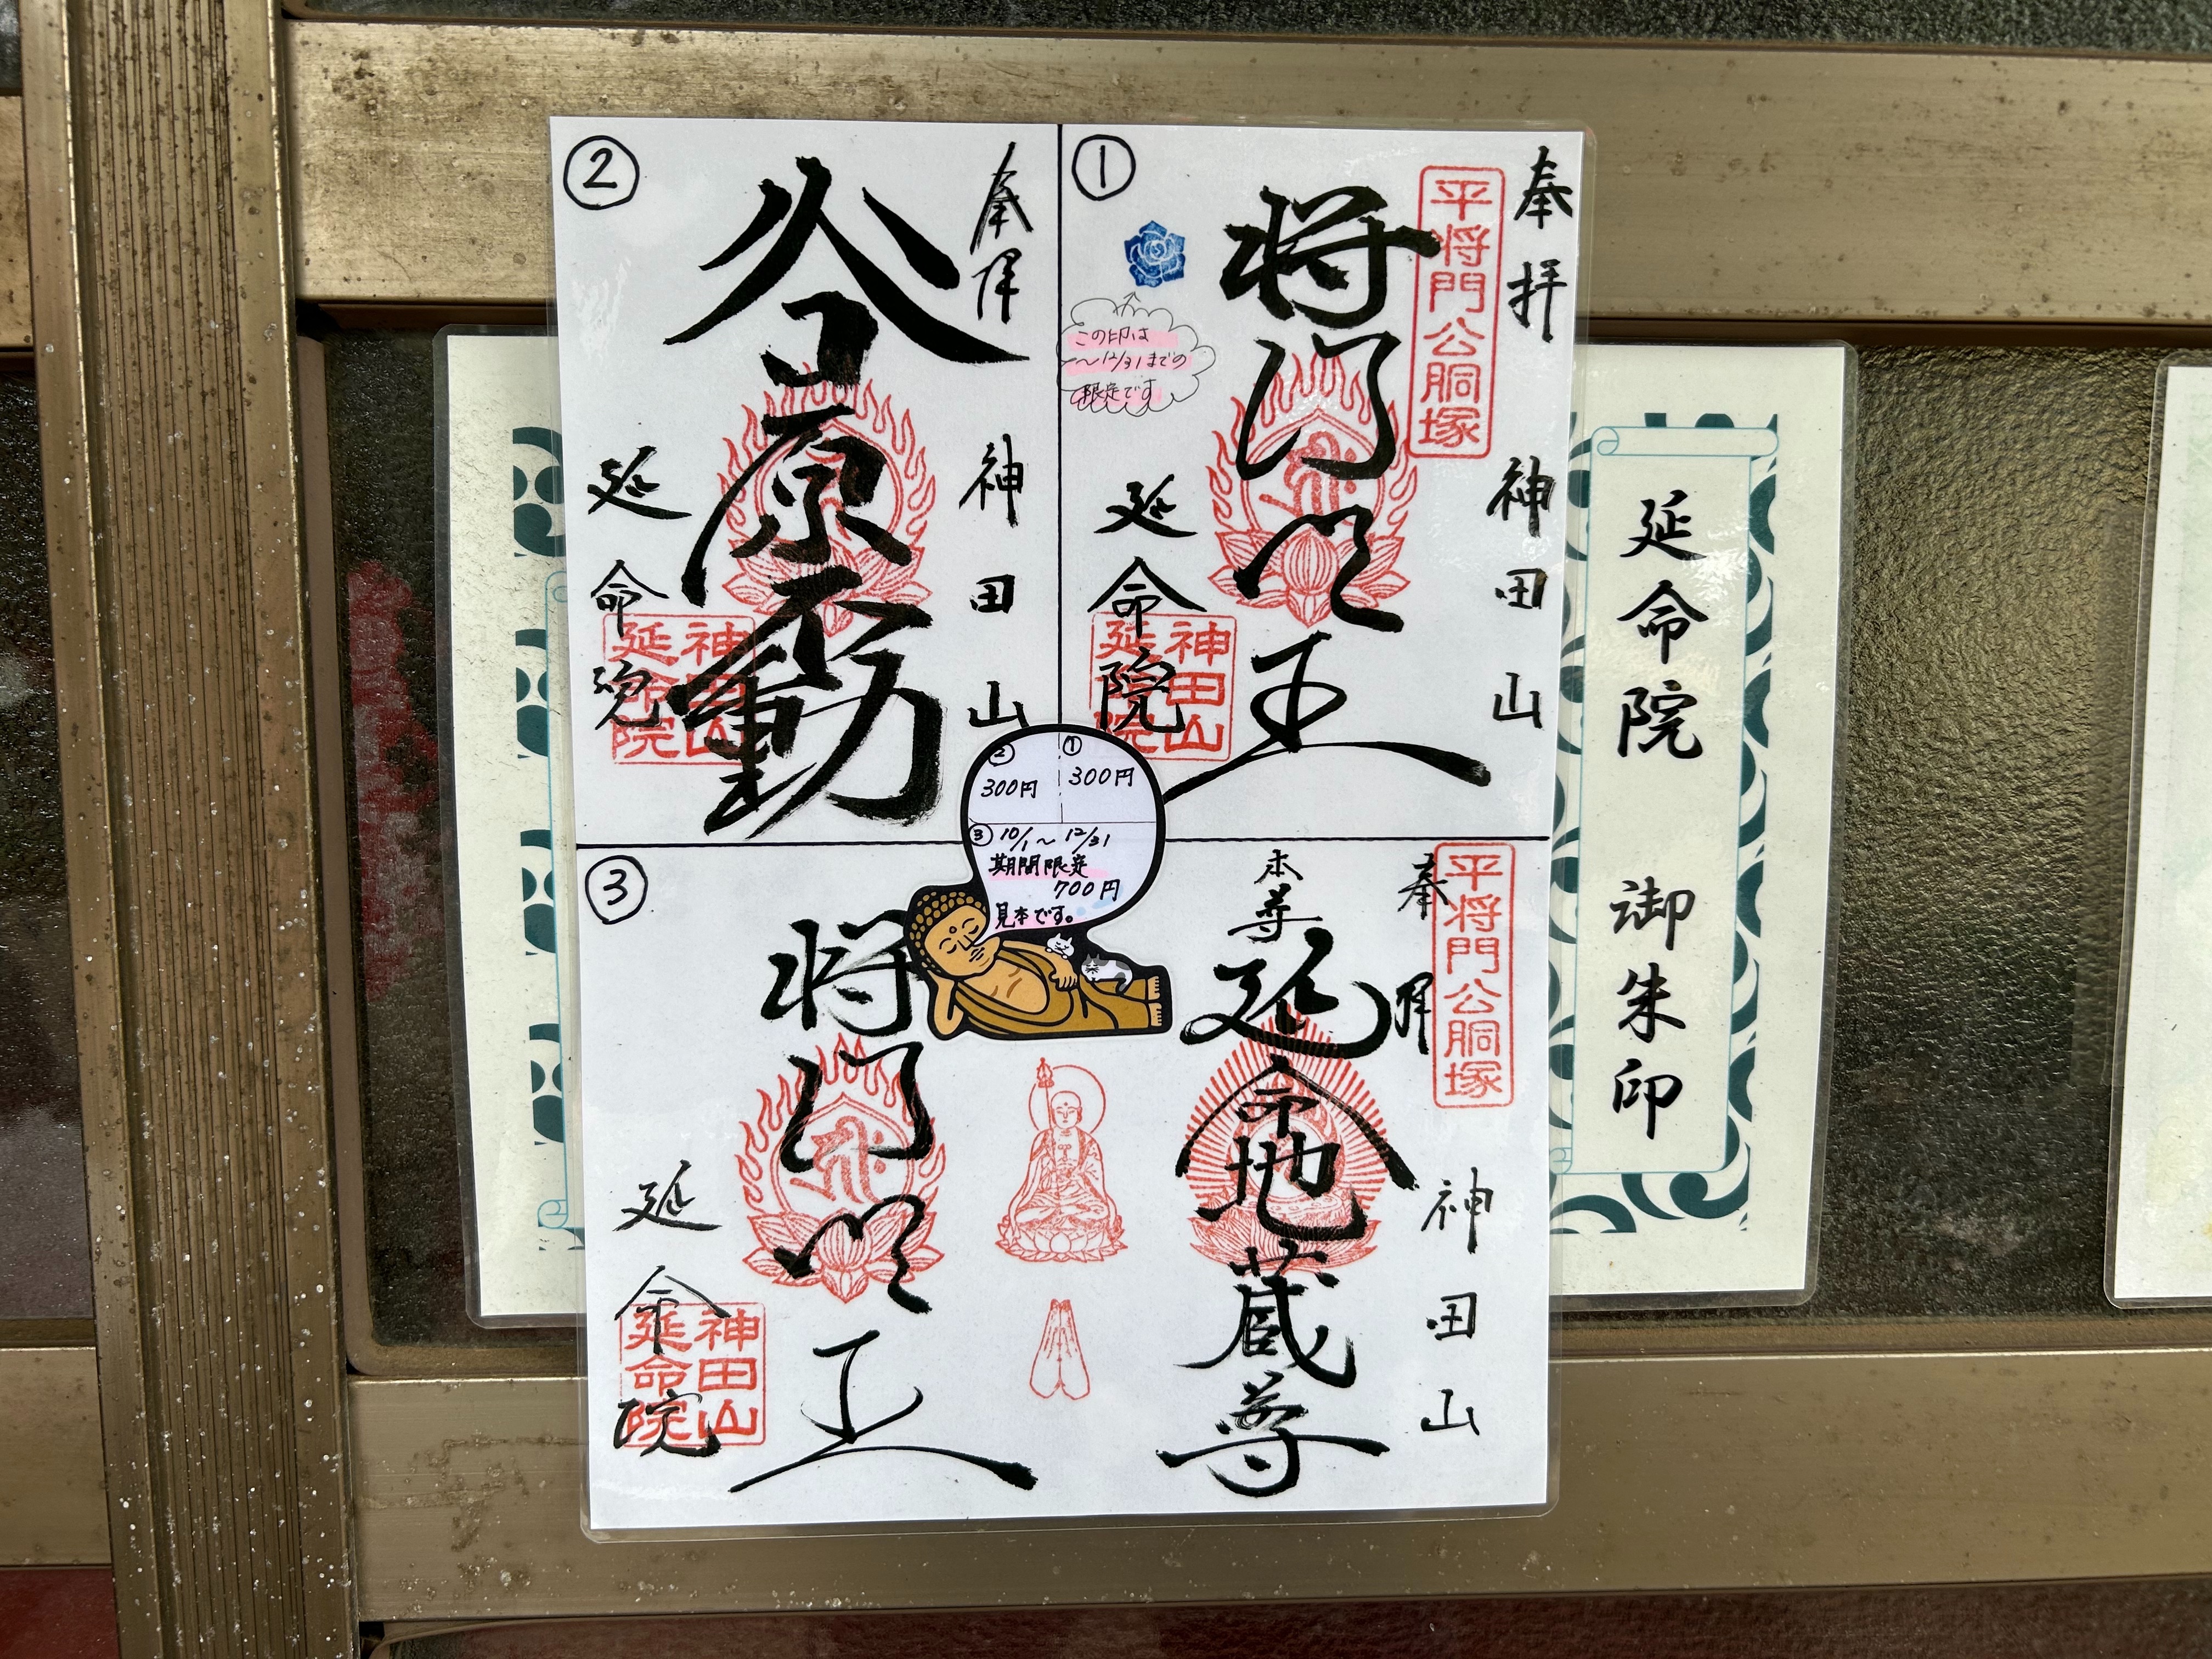 延命院 御朱印
①
奉拝
平将門公胴塚
神田山
将門明王
この印は
～12/31までの
限定です
延命院
神田山
延命院
②
奉拝
神田山
谷原不動
延命院
神田山
延命院
② 300円
① 300円
③ 10/1～12/31
期間限定
700円
見本です。
③
奉拝
平将門公胴塚
神田山
本尊
延命地蔵尊
将門明王
延命院
神田山
延命院